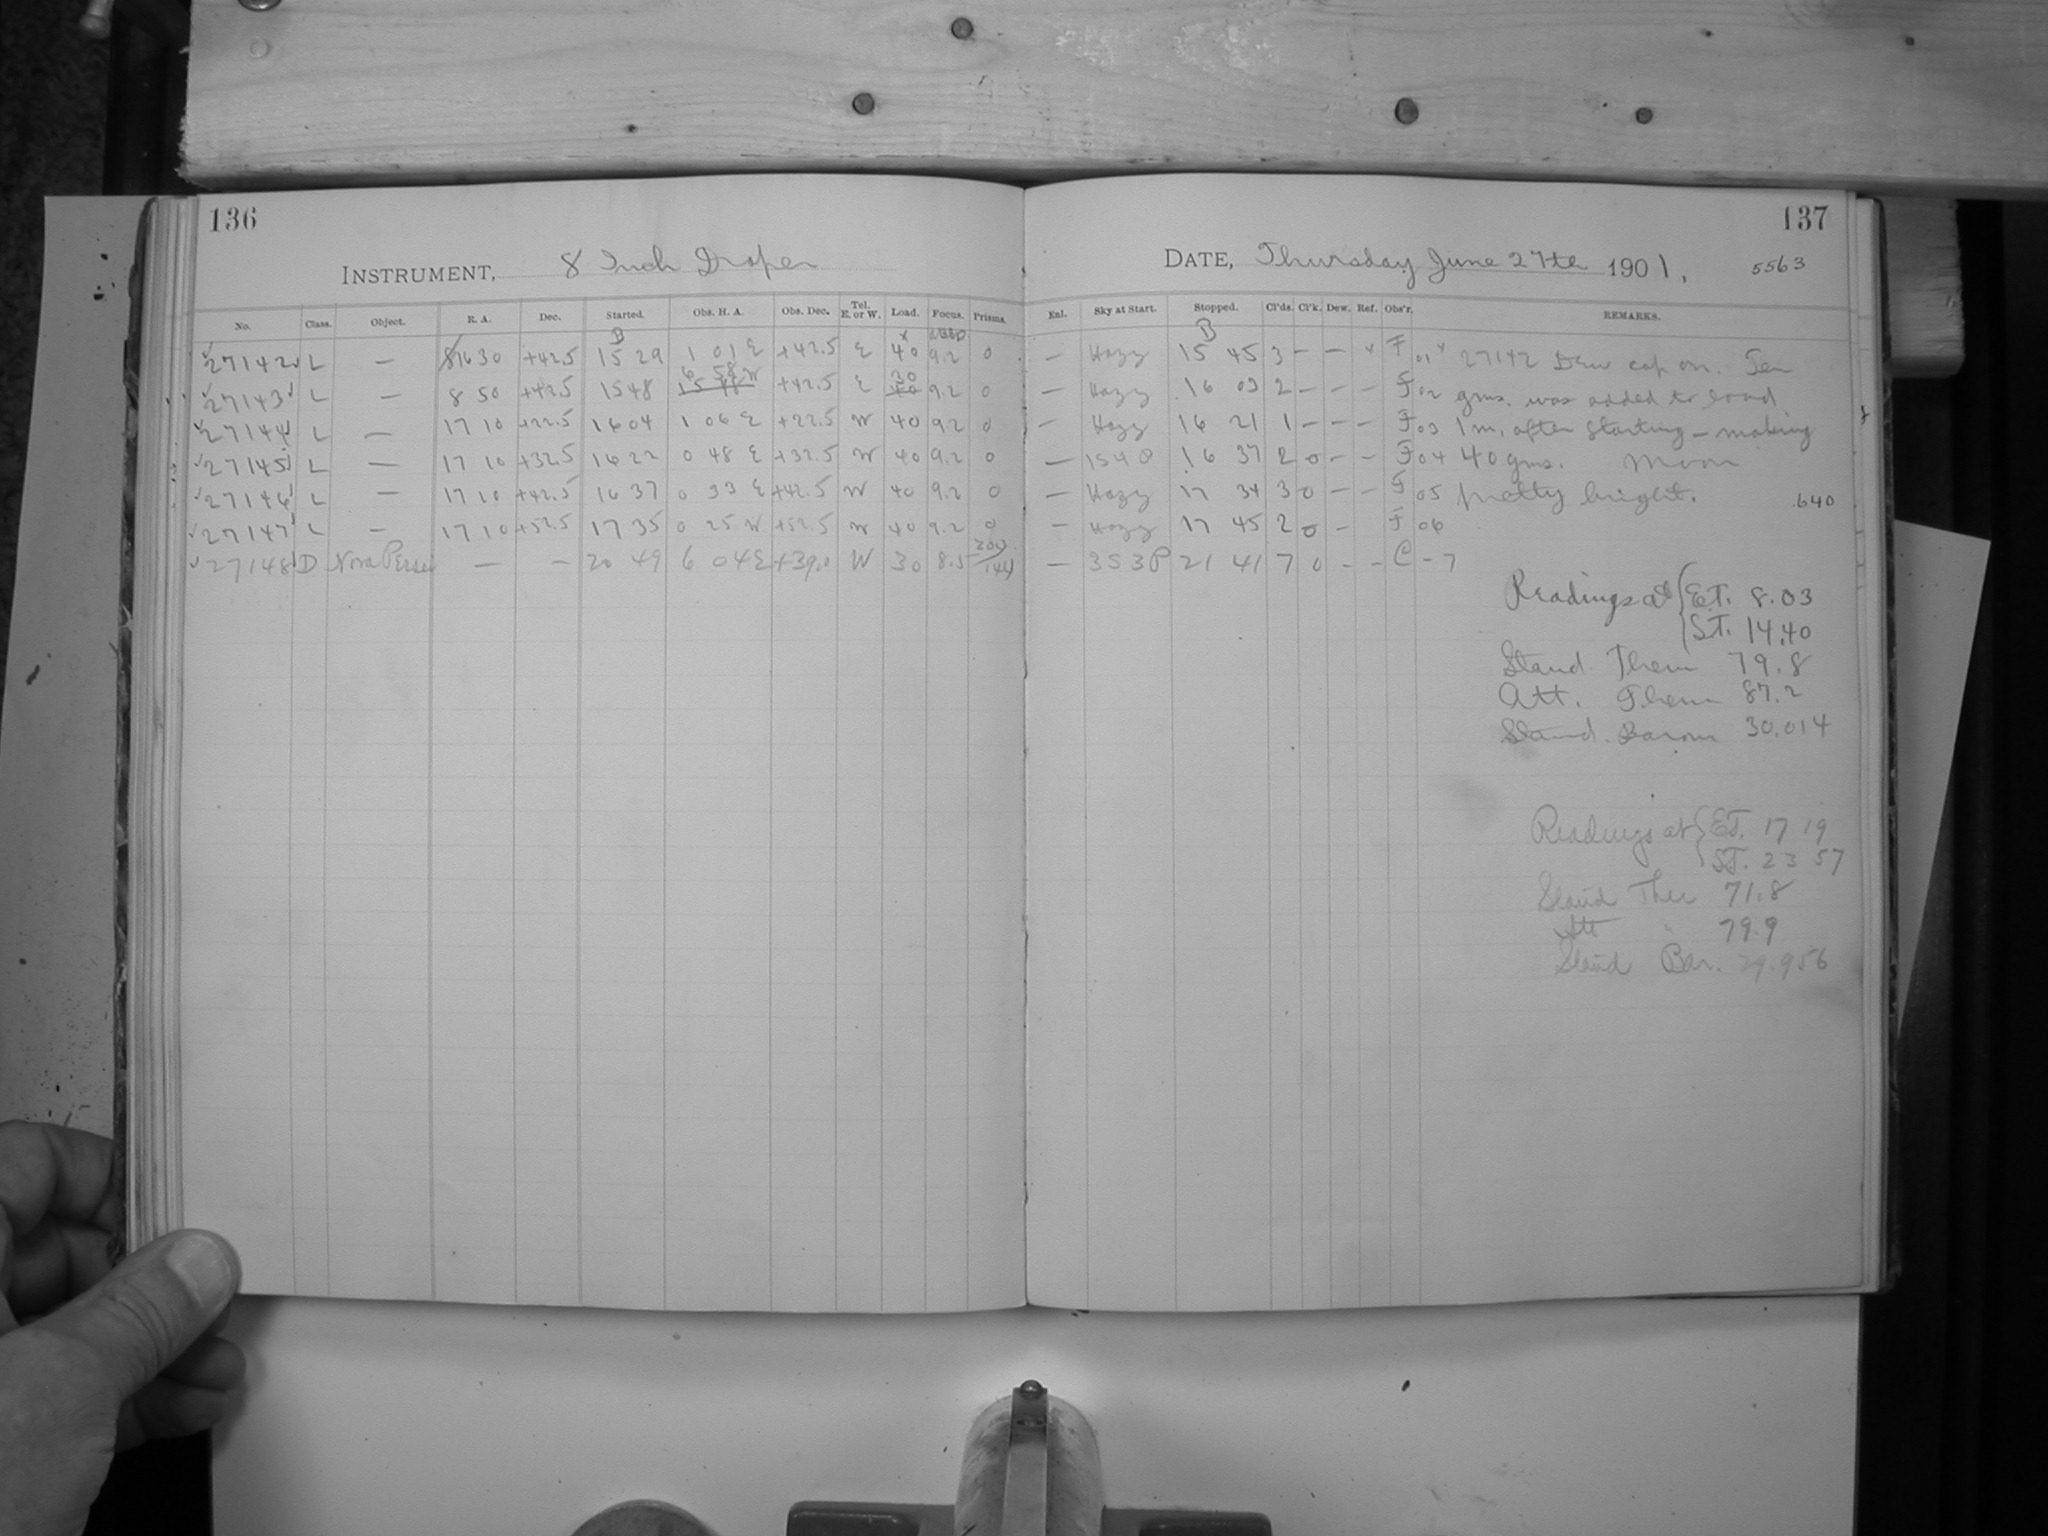 136
INSTRUMENT, 8 Inch Draper
No. Class. Object. R. A. Dec. Started. Obs. H. A. Obs. Dec. Tel. E. or W. Load. Focus. Prisms.
27142 L — 16 30 +42.5 15 29 1 01 E +42.5 E 40 9.2 0
27143 L — 8 50 +42.5 15 48 6 58 W +42.5 E 30 9.2 0
27144 L — 17 10 +22.5 16 04 1 06 E +22.5 W 40 9.2 0
27145 L — 17 10 +32.5 16 22 0 48 E +32.5 W 40 9.2 0
27146 L — 17 10 +42.5 16 37 0 33 E +42.5 W 40 9.2 0
27147 L — 17 10 +52.5 17 35 0 25 W +52.5 W 40 9.2 0
27148 D Nova Persei — — 20 49 6 04 E +39.0 W 30 8.5
137
DATE, Thursday June 27th 1901, 5563
Enl. Sky at Start. Stopped. Cl'ds. Cl'k. Dew. Ref. Obs'r. REMARKS.
— Hazy 15 45 3 — — x F 01 x 27142 Dew cap on. Ten
— Hazy 16 03 2 — — — F 02 gms. was added to load
— Hazy 16 21 1 — — — F 03 1 m. after starting — making
— 16 37 2 0 — — F 04 40 gms. Moon
— Hazy 17 34 3 0 — — F 05 pretty bright. .640
— Hazy 17 45 2 0 — F 06
— 353P 21 41 7 0 - - C - 7
Readings at { E.T. 8.03
{ S.T. 14.40
Stand. Ther 79.8
Att. Ther 87.2
Stand. Barom 30.014
Readings at { E.T. 17 19
{ S.T. 23 57
Stand Ther 71.8
Att " 79.9
Stand Bar. 29.956